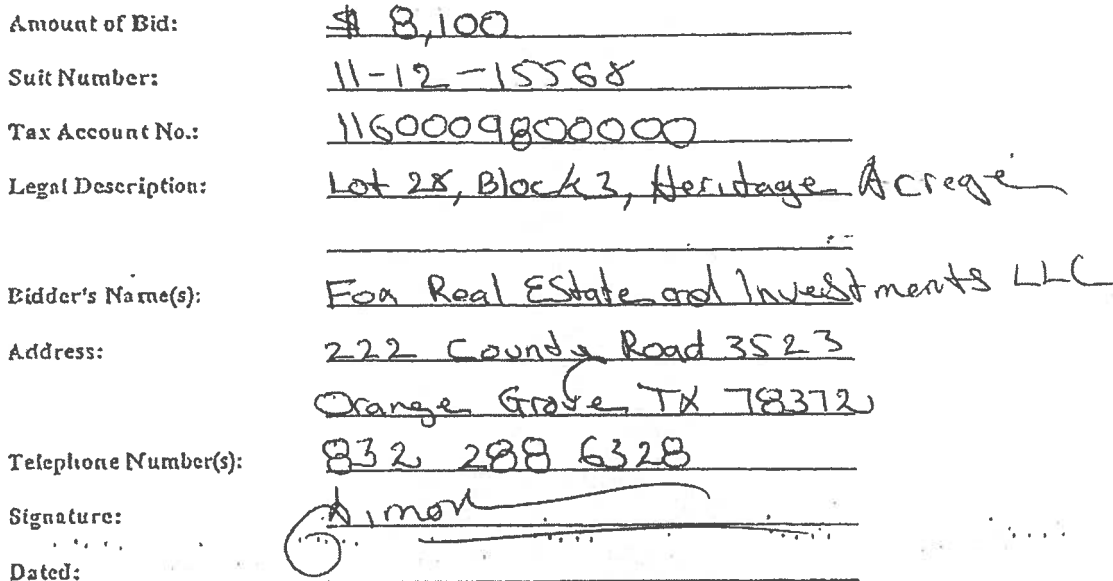 Amount of Bid: $ 8,100
Suit Number: 11-12-15568
Tax Account No.: 11600098000000
Legal Description: Lot 28, Block 3, Heritage Acrege
Bidder's Name(s): Fox Real Estate and Investments LLC
Address: 222 County Road 3523
Orange Grove TX 78372
Telephone Number(s): 832 288 6328
Signature:
Dated: